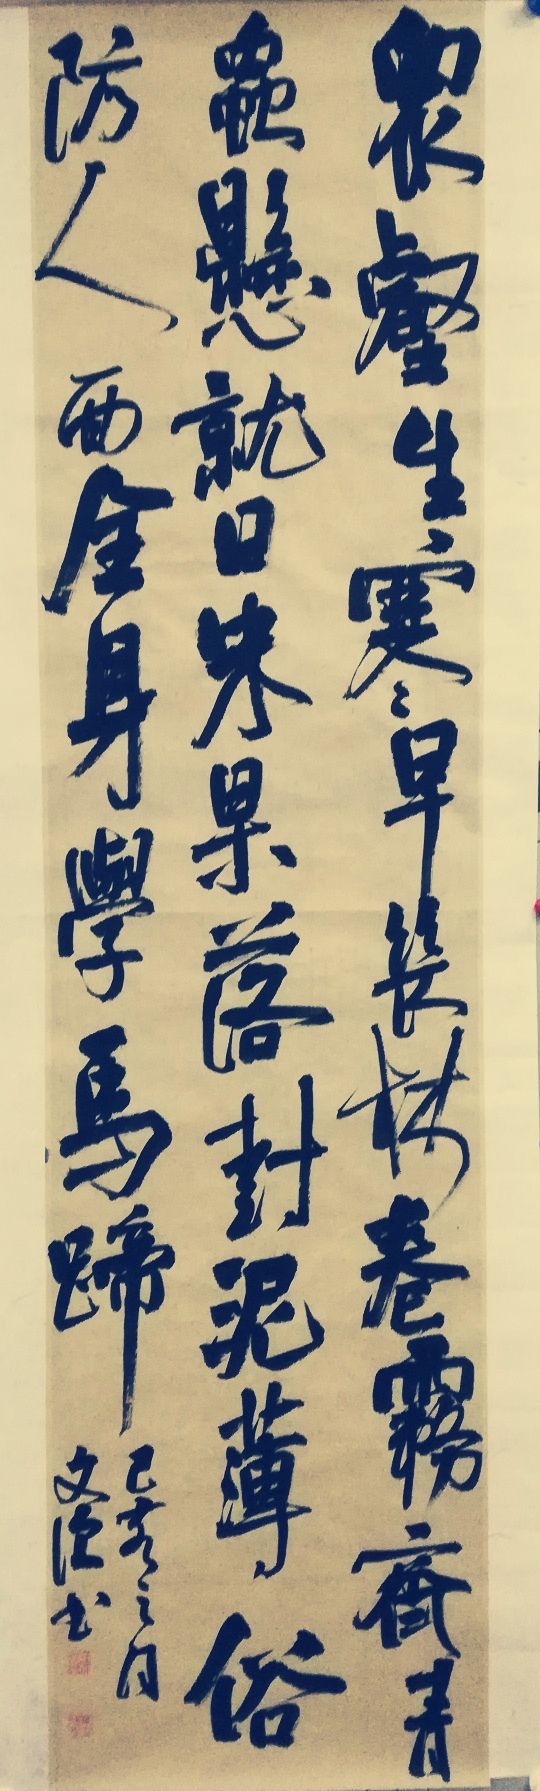 眾壑生寒早長林卷霧齊青
蟲懸就日朱果落封泥薄俗
防人面全身學馬蹄
己亥之月
文德書